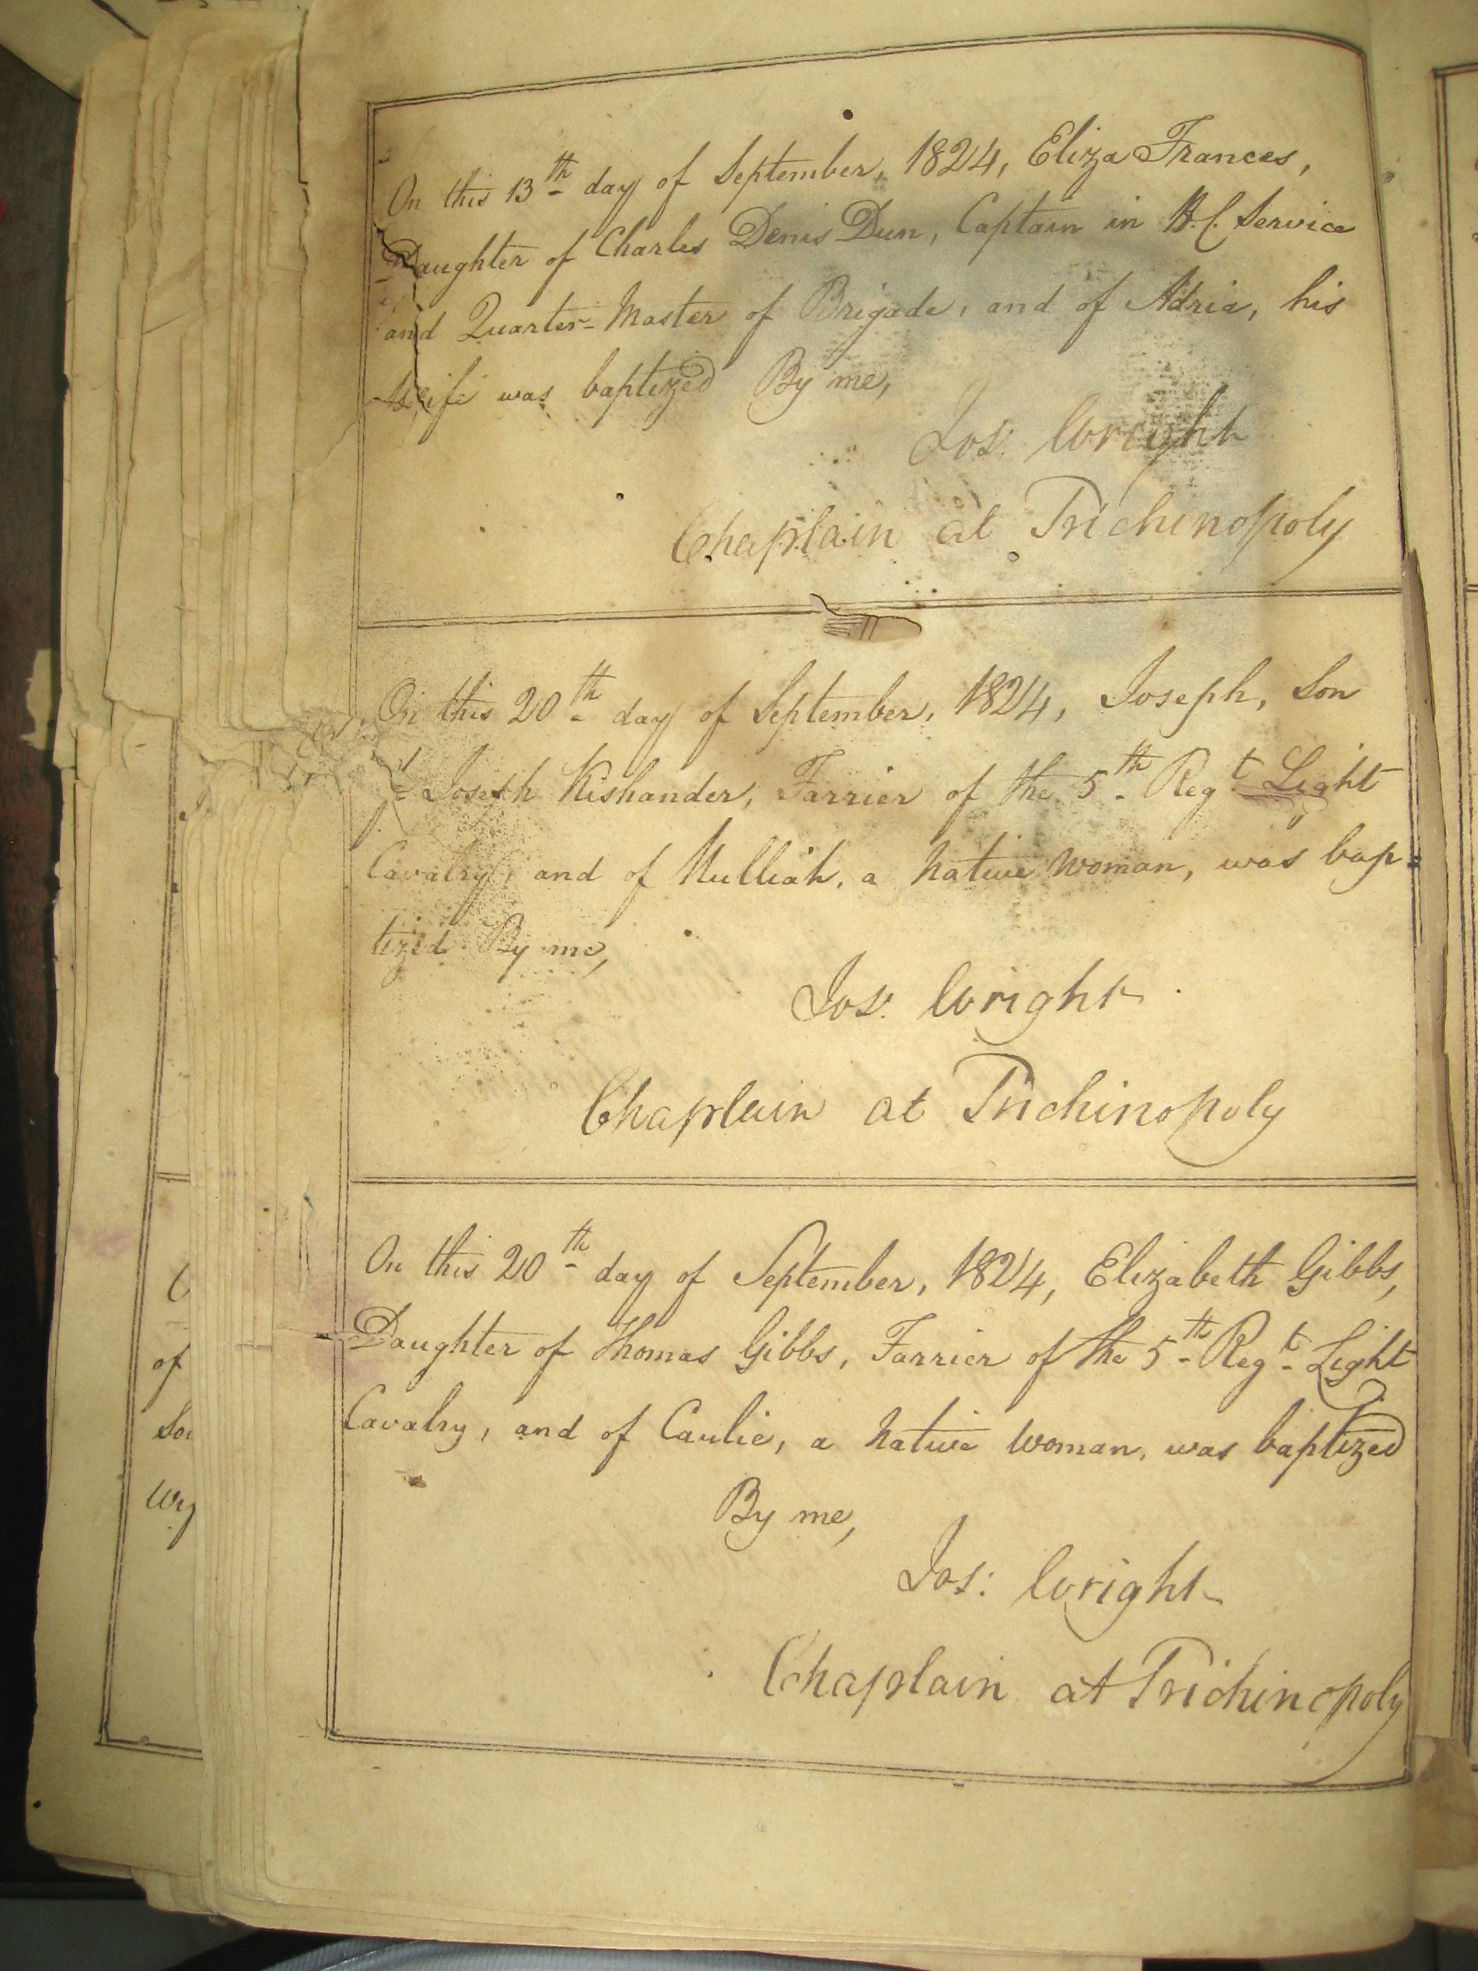 On this 13th day of September, 1824, Eliza Frances,
Daughter of Charles Denis Dun, Captain in H.C. Service
and Quarter-Master of Brigade, and of Adria, his
Wife was baptized By me,
Jos: Wright
Chaplain at Trichinopoly
On this 20th day of September, 1824, Joseph, Son
Joseph Kishander, Farrier of the 5th Regt Light
Cavalry, and of Mulliah, a Native Woman, was bap=
tized By me,
Jos: Wright
Chaplain at Trichinopoly
On this 20th day of September, 1824, Elizabeth Gibbs,
Daughter of Thomas Gibbs, Farrier of the 5th Regt Light
Cavalry, and of Caulie, a Native Woman, was baptized
By me,
Jos: Wright
Chaplain at Trichinopoly
of